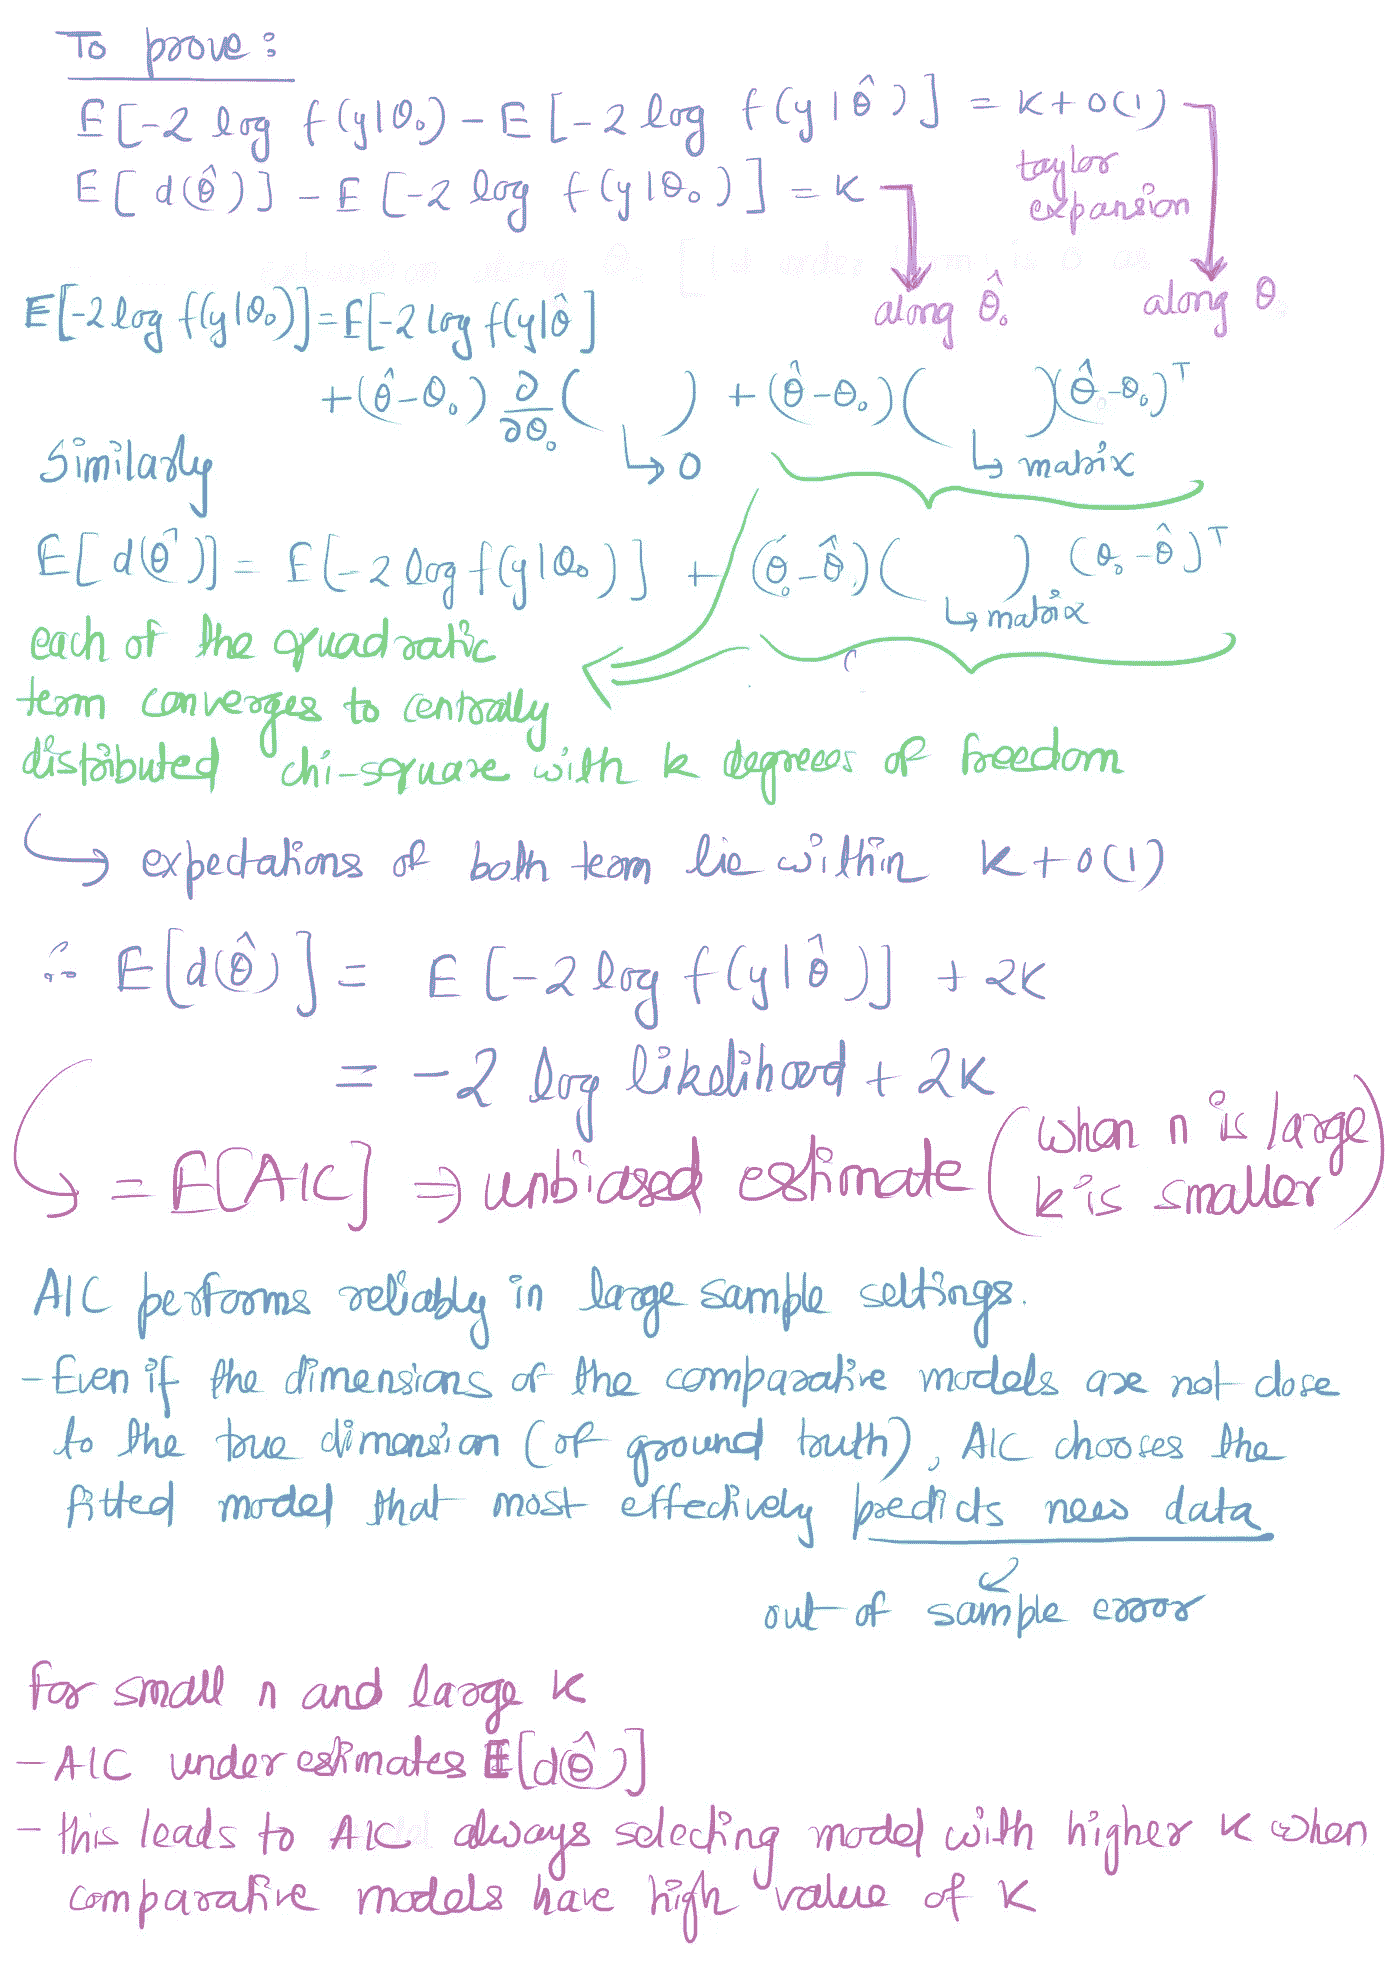 To prove:
E[-2 log f(y|θ₀) - E[-2 log f(y|θ̂)] = K + o(1)
E[d(θ̂)] - E[-2 log f(y|θ₀)] = K
taylor
expansion
along θ̂₀
along θ
E[-2 log f(y|θ₀)] = E[-2 log f(y|θ̂]
+(θ̂-θ₀) ∂/∂θ₀ ( ) + (θ̂-θ₀)( )(θ̂-θ₀)ᵀ
↳ 0
↳ matrix
Similarly
E[d(θ̂)] = E[-2 log f(y|θ₀)] + (θ₀-θ̂)( ) (θ₀-θ̂)ᵀ
↳ matrix
each of the quadratic
term converges to centrally
distributed chi-square with k degrees of freedom
↳ expectations of both term lie within K + o(1)
∴ E[d(θ̂)] = E[-2 log f(y|θ̂)] + 2K
= -2 log likelihood + 2K
= E[AIC] ⇒ unbiased estimate (when n is large
k is smaller)
AIC performs reliably in large sample settings.
- Even if the dimensions of the comparative models are not close
to the true dimension (of ground truth), AIC chooses the
fitted model that most effectively predicts new data
out of sample error
For small n and large K
- AIC underestimates E[d(θ̂)]
- this leads to AIC always selecting model with higher K when
comparative models have high value of K